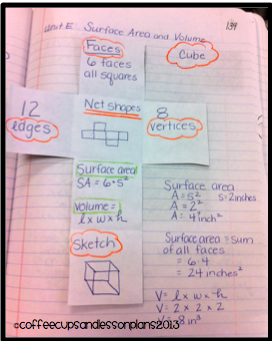 Unit E: Surface Area and Volume
139
Faces
6 faces
all squares
Cube
12
edges
Net shapes
8
vertices
Surface area
SA = 6·s²
Volume =
l x w x h
Surface area
A = s² s=2inches
A = 2²
A = 4inch²
Sketch
Surface area = sum
of all faces
= 6·4
= 24 inches²
V = l x w x h
V = 2 x 2 x 2
V = 8 in³
©coffeecupsandlessonplans2013